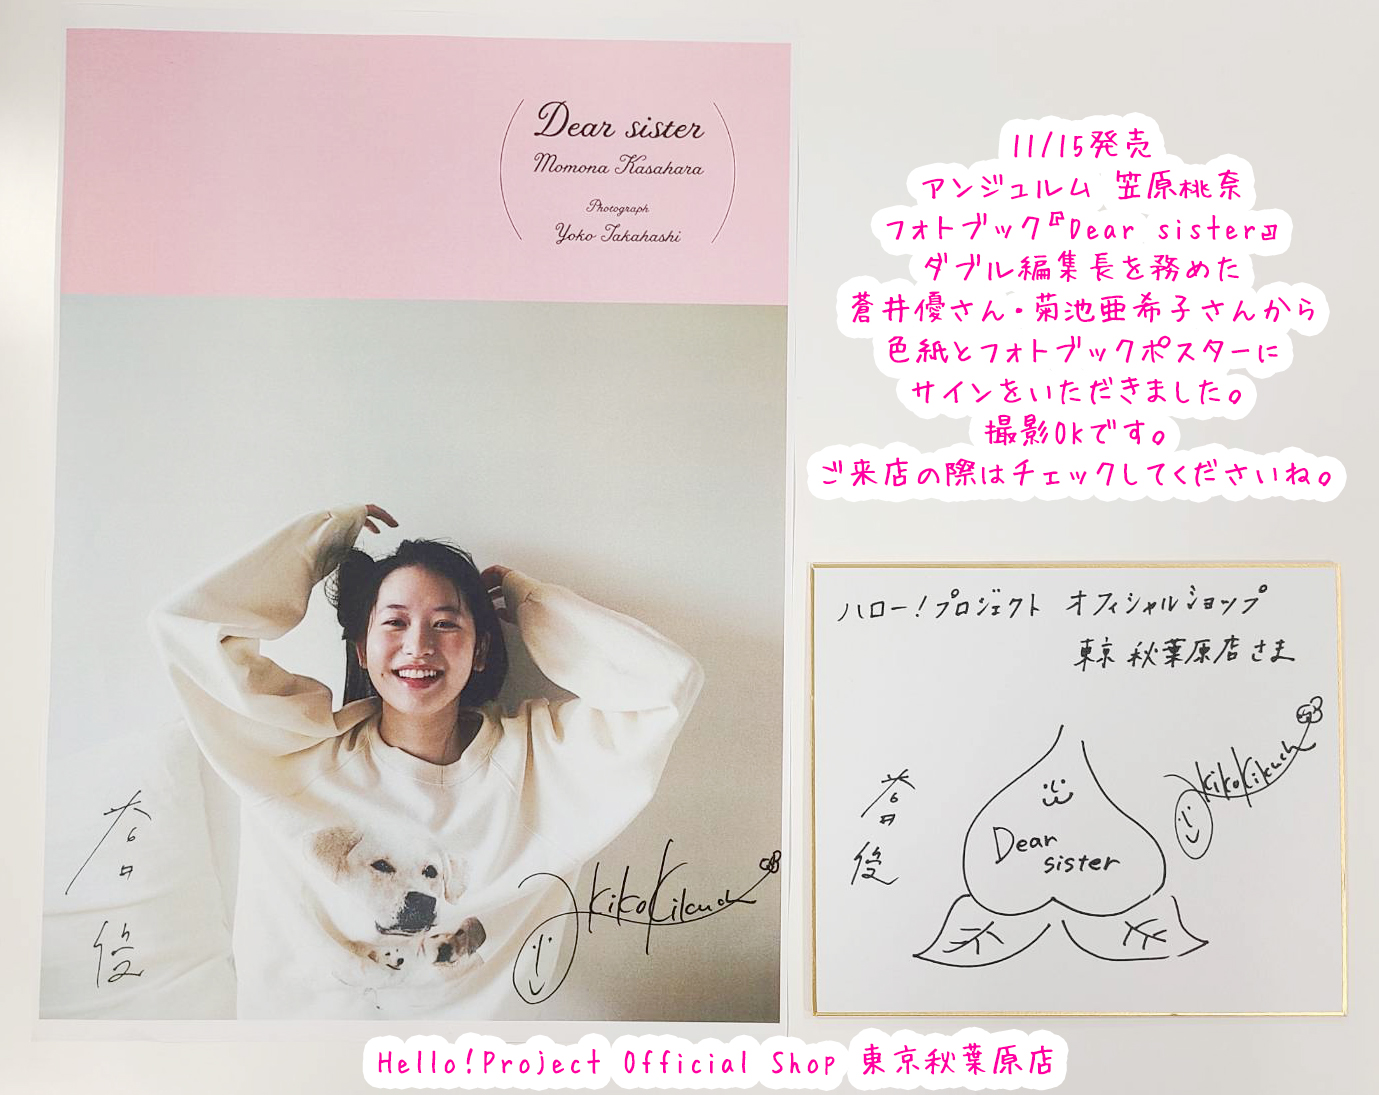 Dear sister
Momona Kasahara
Photograph
Yoko Takahashi
11/15発売
アンジュルム 笠原桃奈
フォトブック『Dear sister』
ダブル編集長を務めた
蒼井優さん・菊池亜希子さんから
色紙とフォトブックポスターに
サインをいただきました。
撮影OKです。
ご来店の際はチェックしてくださいね。
蒼井
優
KikoKikuch
ハロー!プロジェクト オフィシャルショップ
東京 秋葉原店さま
蒼井
優
KikoKikuch
Dear
sister
Hello!Project Official Shop 東京秋葉原店